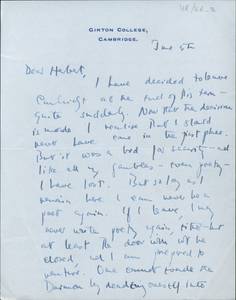 GIRTON COLLEGE,
CAMBRIDGE.
June 5th
Dear Herbert,
I have decided to leave
Cambridge at the end of this term -
quite suddenly. Now that the decision
is made I realise that I should
never have come in the first place.
But it was a bid for security - and
like all my gambles - even poetry -
I have lost. But so long as I
remain here I can never be a
poet again. If I leave, I may
never write poetry again, either - but
at least the door will not be
closed, and I am prepared to
venture. One cannot
Daemon by deadening oneself into